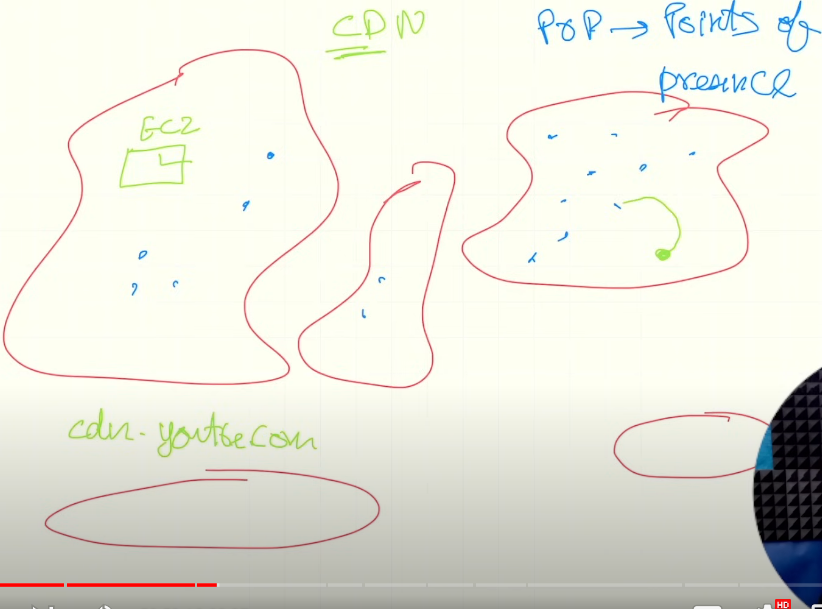 CDN
PoP → Points of
presence
EC2
cdn.youtbe.com
HD